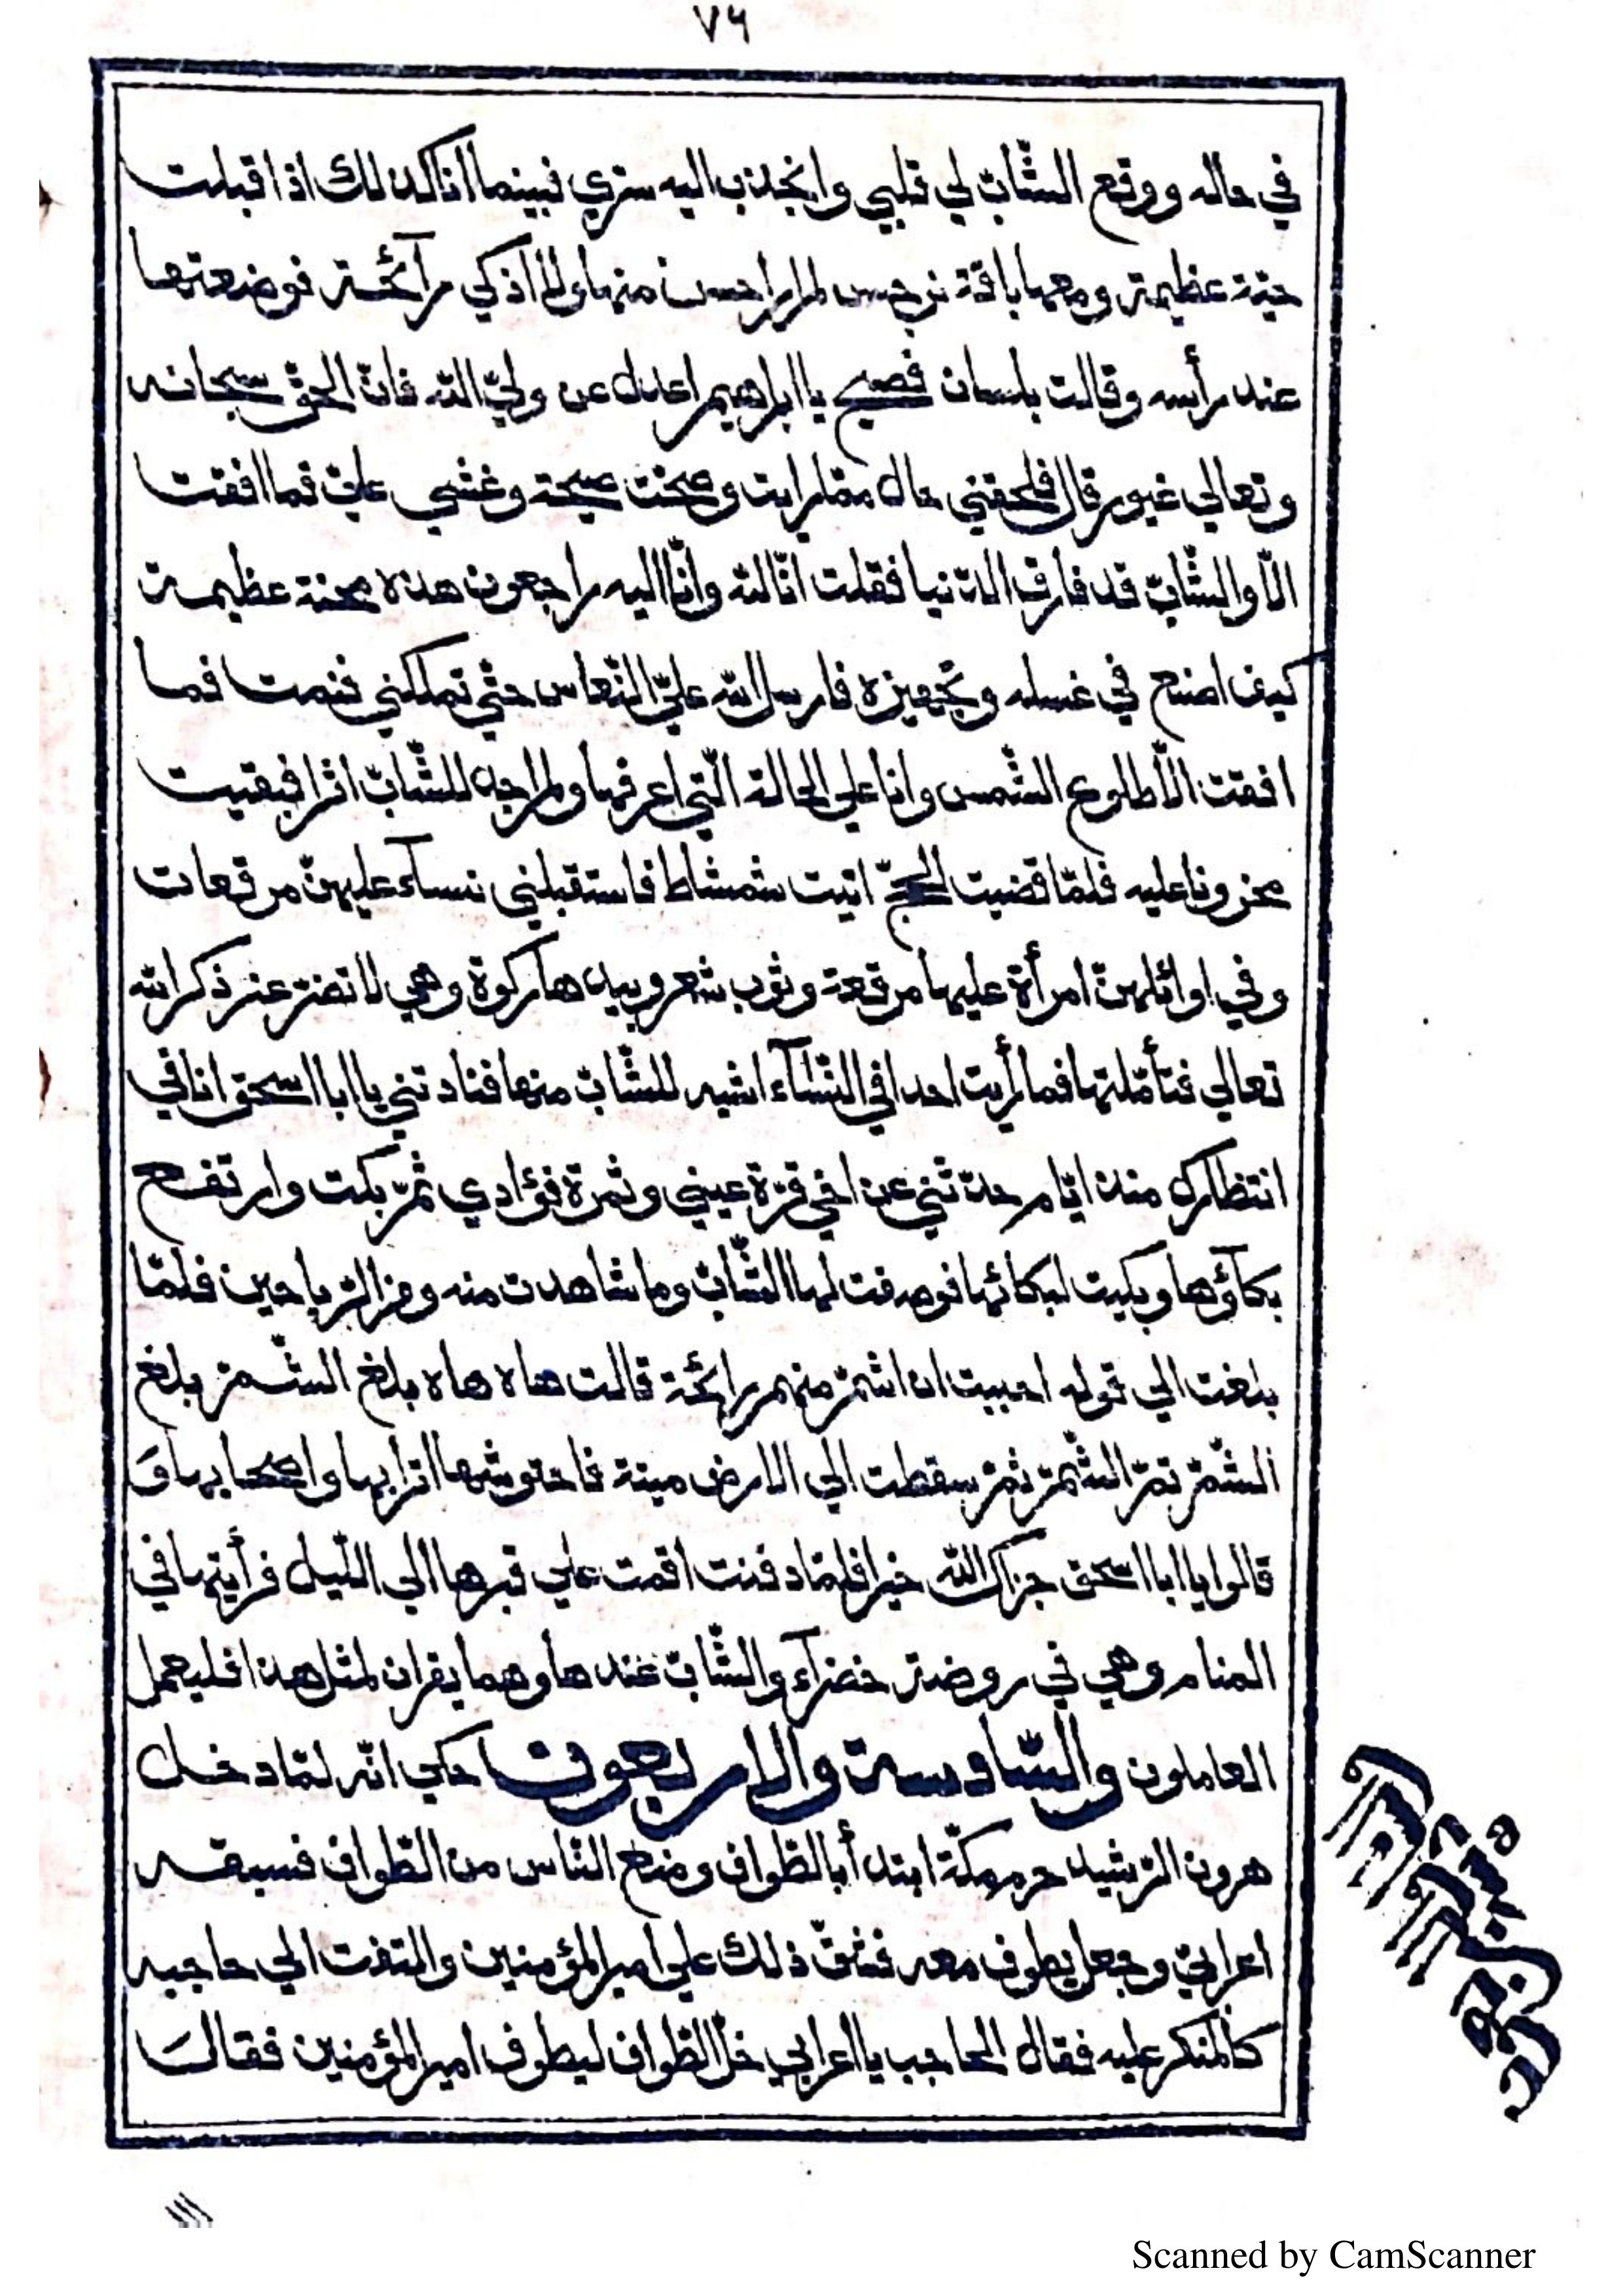 ٧٦
في حاله ووقع الشّابّ لي قلبي وانجذب اليه سرّي فبينما انا كذلك اذ اقبلت
حيّة عظيمة ومعها باقة نرجس لم ار احسن منها ولا اذكي رآئحة فوضعتها
عند رأسه وقالت بلسان فصيح يا ابراهيم اعدل عن وليّ اللّه فانّ الحقّ سبحانه
وتعالي غيور قال فلحقني حال ممّا رايت وصحت صيحة وغشي عليّ فما افقت
الّا والشّابّ قد فارق الدّنيا فقلت انّا للّه وانّا اليه راجعون هذه محنة عظيمة
كيف اصنع في غسله وتجهيزه فارسل اللّه عليّ النّعاس حتّي تملكني فنمت فما
افقت الّا طلوع الشّمس وانا علي الحالة الّتي اعرفها ولم اجد للشّابّ اثرا فبقيت
محزونا عليه فلمّا قضيت الحجّ اتيت شمشاط فاستقبلني نسآء عليهنّ مرقعات
وفي اوائلهنّ امرأة عليها مرقعة وثوب شعر وبيدها ركوة وهي لا تفتر عن ذكر اللّه
تعالي فتأمّلتها فما رأيت احدا في النّسآء اشبه للشّابّ منها فنادتني يا ابا اسحق انا في
انتظارك منذ ايّام حدّثني عن اخي قرّة عيني وثمرة فؤادي ثمّ بكت وارتفع
بكآؤها وبكيت لبكائها فوصفت لها الشّابّ وما شاهدت منه ومن الرّياحين فلمّا
بلغت الي قوله احببت ان اشمّ منهم رائحة قالت هاه هاه بلغ الشّمّ بلغ
الشّمّ تمّ الشّمّ ثمّ سقطت الي الارض ميتة فاحتوشها اترابها واصحابها وَ
قالوا يا ابا اسحق جزاك اللّه خيرا فلمّا دفنت اقمت علي قبرها الي اللّيل فرأيتها في
المنام وهي في روضة خضرآء والشّابّ عندها وهما يقران لمثل هذا فليعمل
العاملون والسّادسة والاربعون حكي انّه لمّا دخل
هرون الرّشيد حرم مكّة ابتدأ بالطّواف ومنع النّاس من الطّواف فسبقه
اعرابيّ وجعل يطوف معه فشقّ ذلك علي امير المؤمنين والتفت الي حاجبه
كالمنكر عليه فقال الحاجب يا اعرابي خلّ الطّواف ليطوف امير المؤمنين فقالَ
Scanned by CamScanner